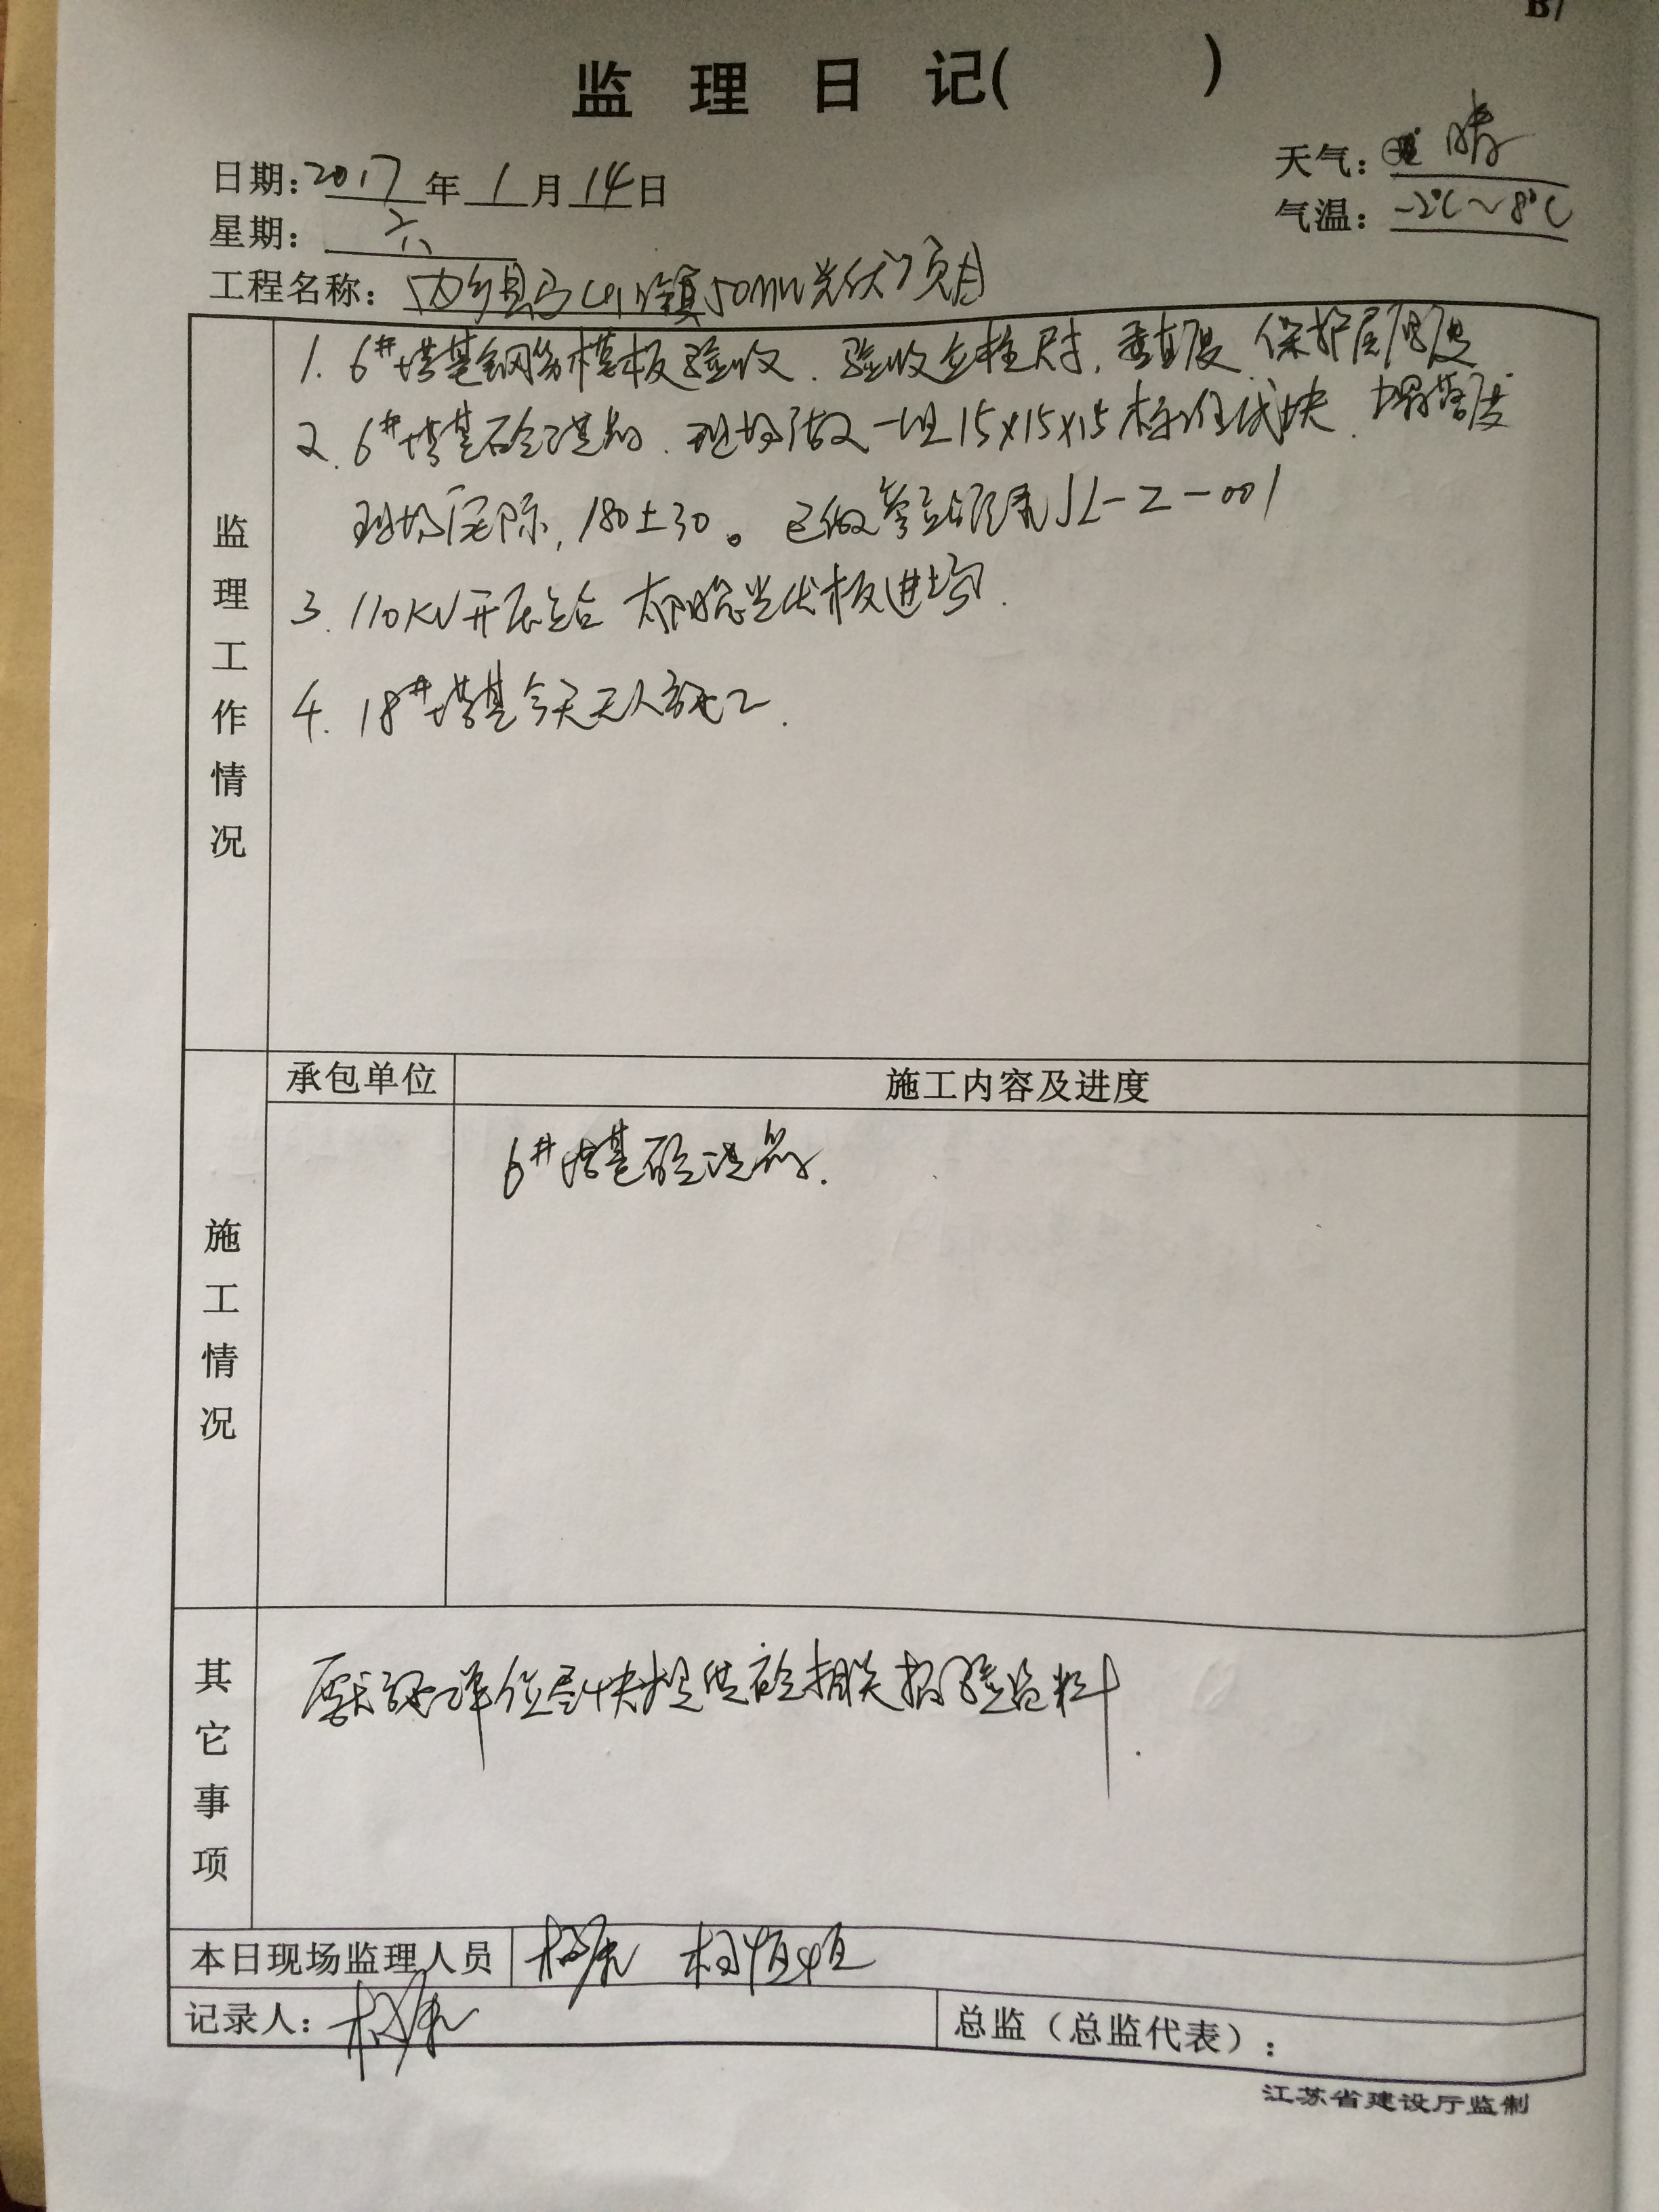 B7
监理日记( )
日期:2017年1月14日
天气:晴
星期:六
气温:-2℃~8℃
工程名称:内乡县马山口镇50MW光伏项目
监理工作情况
1. 6#塔基钢筋模板验收. 验收立柱尺寸, 垂直度 保护层厚度
2. 6#塔基砼浇筑. 现场做一组15x15x15标准试块. 塌落度
现场实际, 180±30。已做旁站记录JL-Z-001
3. 110KV开压站 太阳能光伏板进场.
4. 18#塔基今天无人施工.
施工情况
承包单位 施工内容及进度
6#塔基砼浇筑.
其它事项
要求施工单位尽快提供砼相关报验资料.
本日现场监理人员
记录人:
总监(总监代表):
江苏省建设厅监制